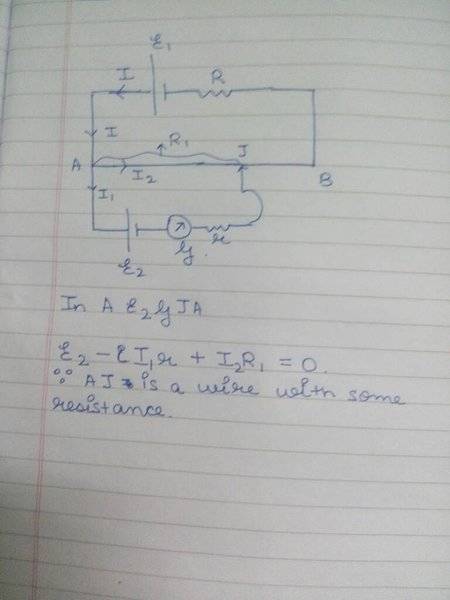 ε₁
I
R
I
R₁
J
A
I₂
B
I₁
r
G
ε₂
In A ε₂ G J A
ε₂ - I₁r + I₂R₁ = 0.
∵ AJ is a wire with some
resistance.